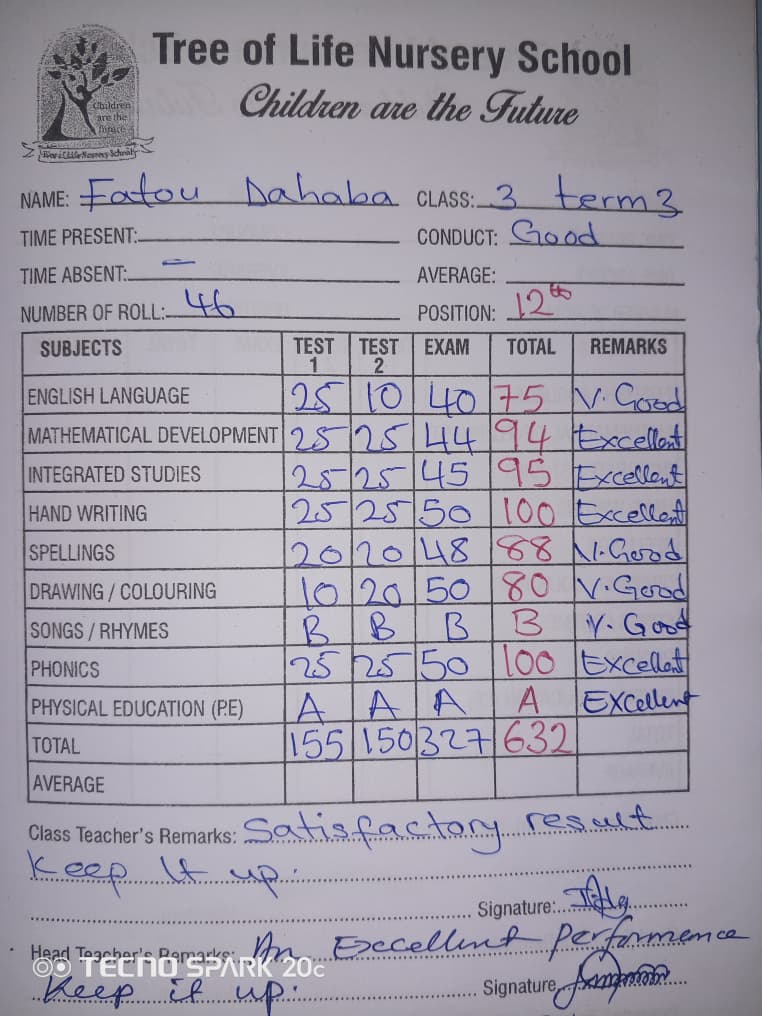 Children
are the
future
Tree of Life Nursery School
Tree of Life Nursery School
Children are the Future
NAME: Fatou Dahaba CLASS: 3 term 3
TIME PRESENT: CONDUCT: Good
TIME ABSENT: – AVERAGE:
NUMBER OF ROLL: 46 POSITION: 12th
SUBJECTS TEST 1 TEST 2 EXAM TOTAL REMARKS
ENGLISH LANGUAGE 25 10 40 75 V. Good
MATHEMATICAL DEVELOPMENT 25 25 44 94 Excellent
INTEGRATED STUDIES 25 25 45 95 Excellent
HAND WRITING 25 25 50 100 Excellent
SPELLINGS 20 20 48 88 V. Good
DRAWING / COLOURING 10 20 50 80 V. Good
SONGS / RHYMES B B B B V. Good
PHONICS 25 25 50 100 Excellent
PHYSICAL EDUCATION (P.E) A A A A Excellent
TOTAL 155 150 327 632
AVERAGE
Class Teacher's Remarks: Satisfactory result
Keep It up.
Signature:
Head Teacher's Remarks: An Excellent Performence
TECNO SPARK 20C
Keep it up. Signature